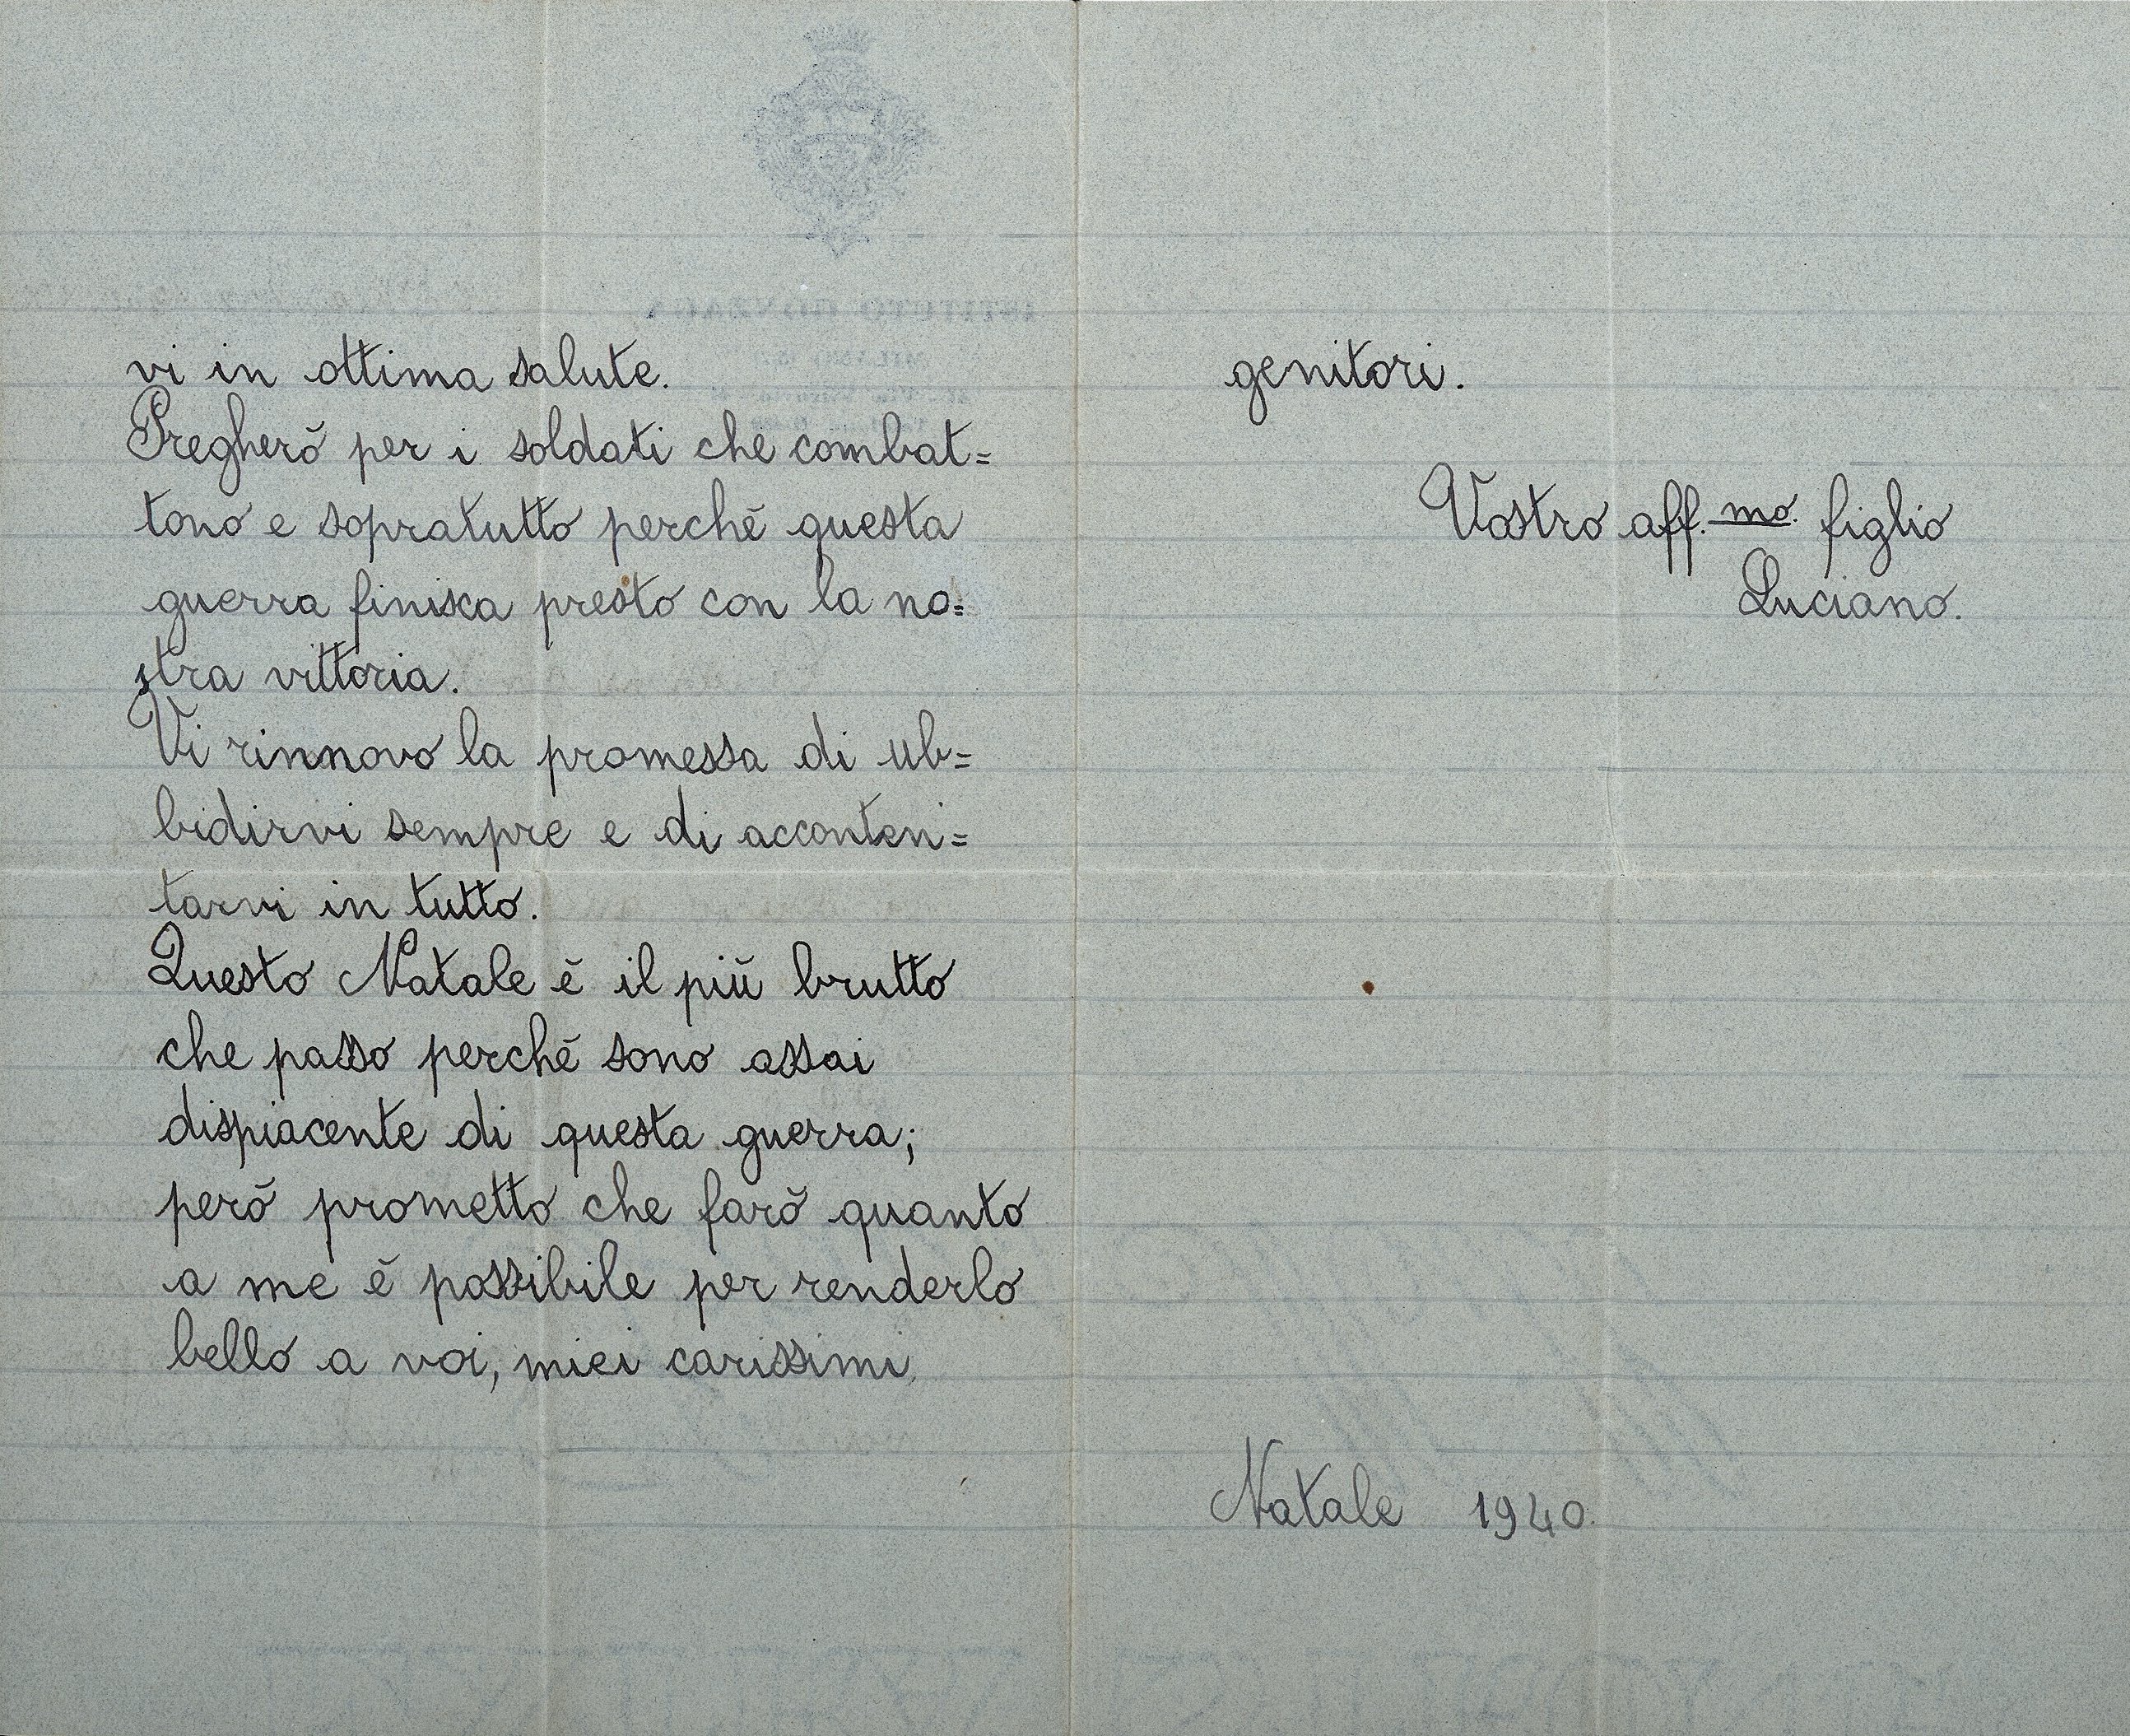 vi in ottima salute.
Pregherò per i soldati che combat=
tono e sopratutto perchè questa
guerra finisca presto con la no=
stra vittoria.
Vi rinnovo la promessa di ub=
bidirvi sempre e di acconten=
tarvi in tutto.
Questo Natale è il più brutto
che passo perchè sono assai
dispiacente di questa guerra;
però prometto che farò quanto
a me è possibile per renderlo
bello a voi, miei carissimi
genitori.
Vostro aff.mo. figlio
Luciano.
Natale 1940.
ISTITUTO GONZAGA